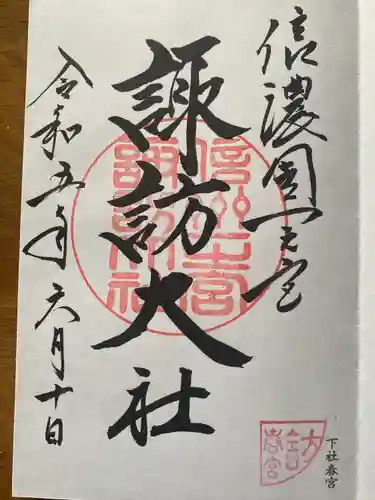 信濃國一之宮
諏訪大社
令和五年六月十日
下社春宮